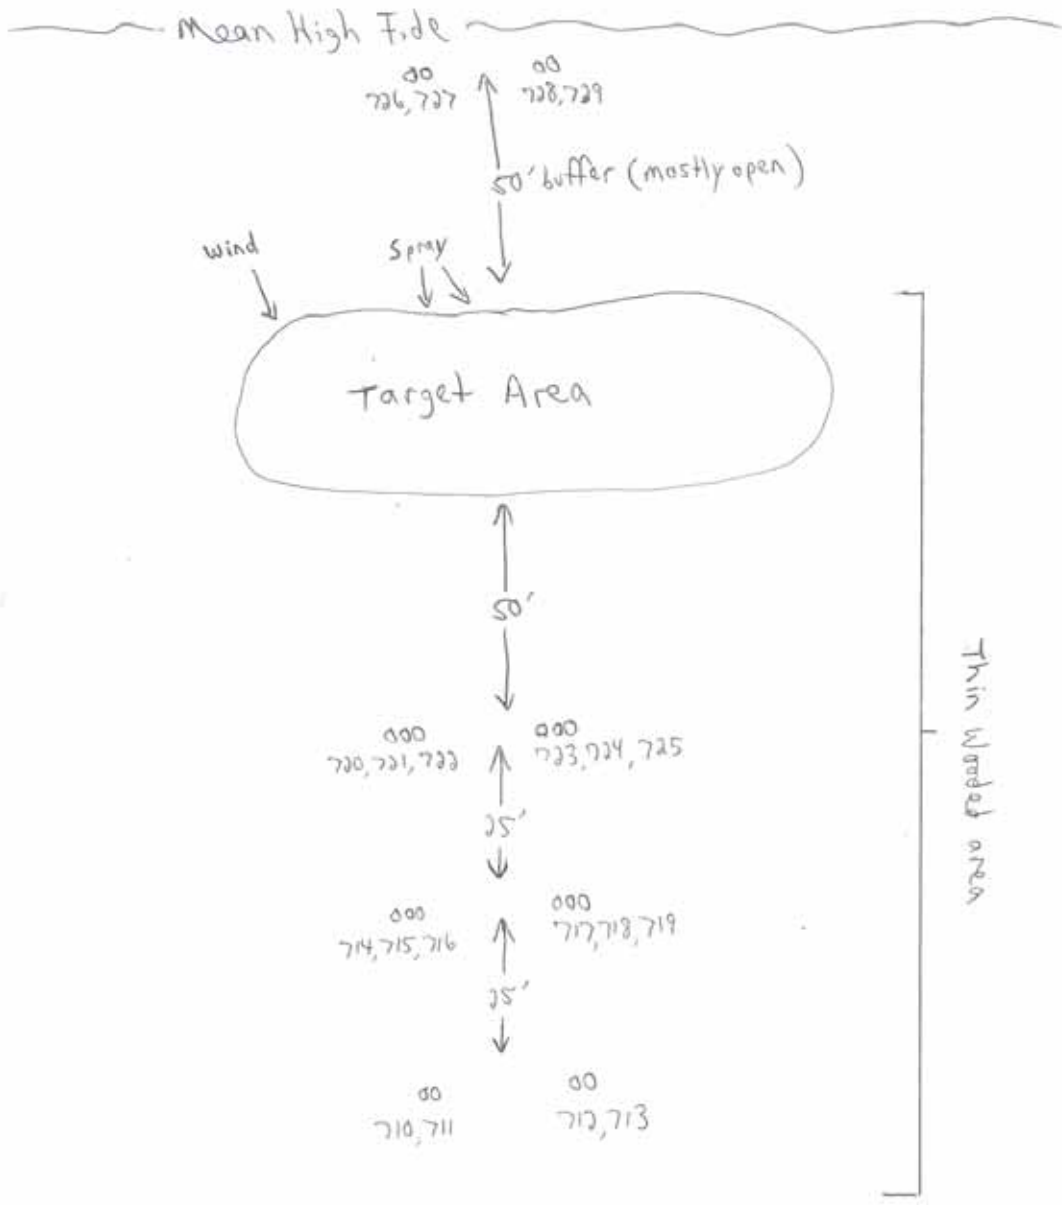 Mean High Tide
726, 727
728, 729
50' buffer (mostly open)
wind
Spray
Target Area
50'
720, 721, 722
723, 724, 725
25'
714, 715, 716
717, 718, 719
25'
710, 711
712, 713
Thin Wooded area